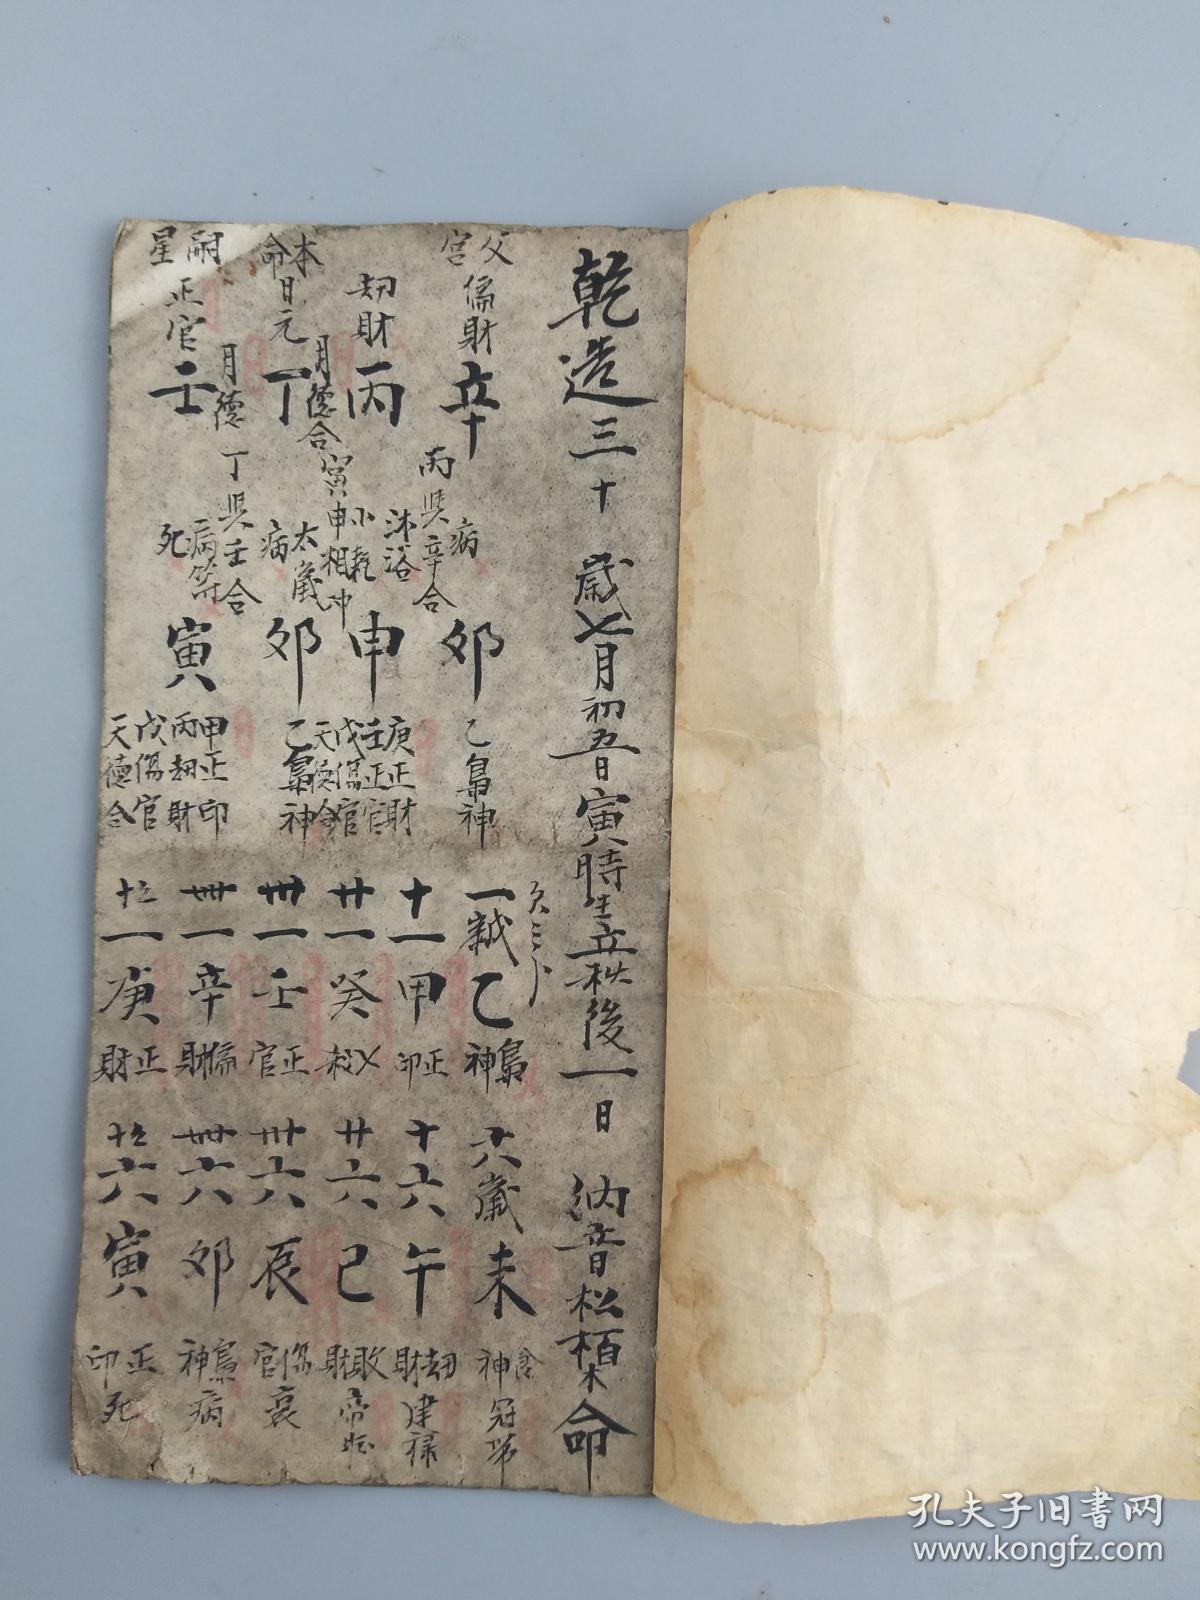 乾造三十歲七月初五日寅時生立秋後一日 納音松栢木命
父宫
偏財
辛
丙與辛合
病
卯
乙梟神
劫財
丙
沐浴
小耗
寅申相冲
申
庚正財
壬正官
戊傷官
天德合
本命
日元
丁
月德合
太歲
病
卯
乙梟神
嗣星
正官
壬
月德
丁與壬合
病符
死
寅
甲正印
丙劫財
戊傷官
天德合
一歲乙
梟神
十一甲
正印
廿一癸
七殺
卅一壬
正官
卌一辛
偏財
五十一庚
正財
六歲未
食神
冠帶
十六午
劫財
建祿
廿六巳
敗財
帝旺
卅六辰
傷官
衰
卌六卯
梟神
病
五十六寅
正印
死
孔夫子旧书网
www.kongfz.com